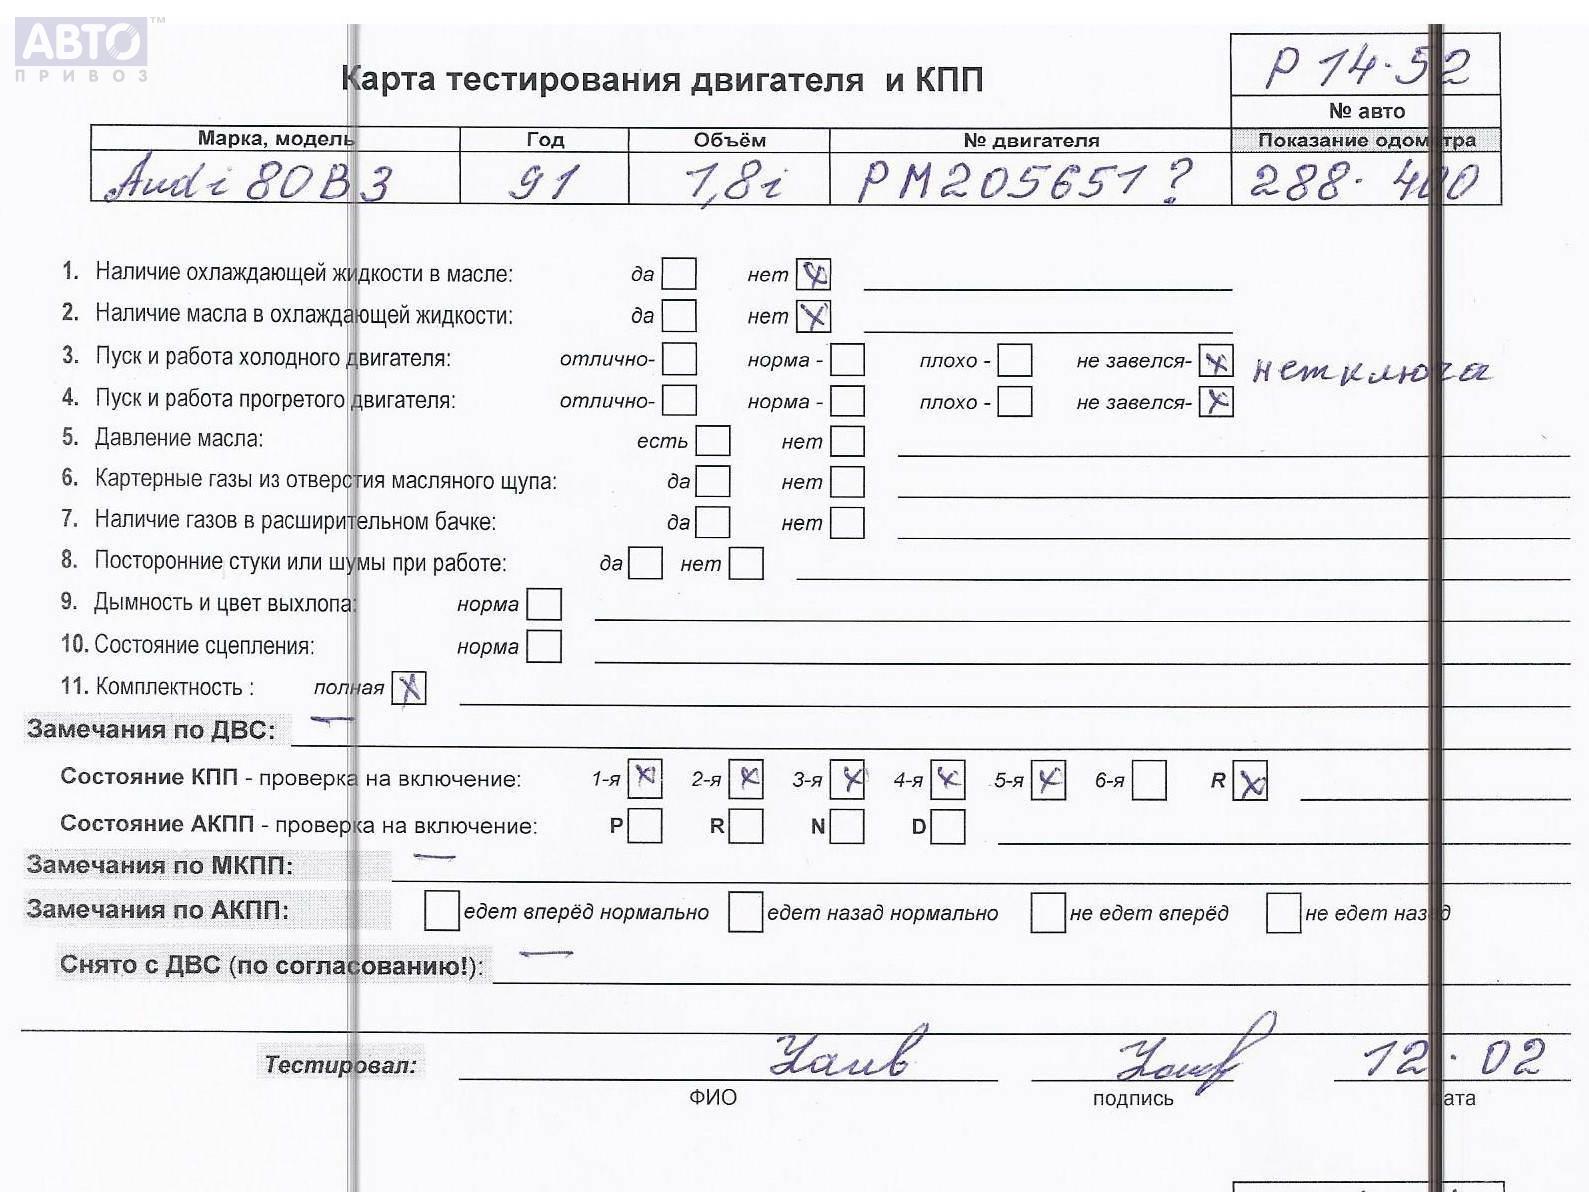 АВТО™
ПРИВОЗ
Р 14-52
Карта тестирования двигателя и КПП
№ авто
Марка, модель Год Объём № двигателя Показание одометра
Audi 80 B3 91 1,8i PM205651? 288-400
1. Наличие охлаждающей жидкости в масле: да нет x
2. Наличие масла в охлаждающей жидкости: да нет x
3. Пуск и работа холодного двигателя: отлично- норма - плохо - не завелся- x нет ключа
4. Пуск и работа прогретого двигателя: отлично- норма - плохо - не завелся- x
5. Давление масла: есть нет
6. Картерные газы из отверстия масляного щупа: да нет
7. Наличие газов в расширительном бачке: да нет
8. Посторонние стуки или шумы при работе: да нет
9. Дымность и цвет выхлопа: норма
10. Состояние сцепления: норма
11. Комплектность : полная x
Замечания по ДВС: —
Состояние КПП - проверка на включение: 1-я x 2-я x 3-я x 4-я x 5-я x 6-я R x
Состояние АКПП - проверка на включение: P R N D
Замечания по МКПП: —
Замечания по АКПП: едет вперёд нормально едет назад нормально не едет вперёд не едет назад
Снято с ДВС (по согласованию!): —
Тестировал: 12.02
ФИО подпись дата